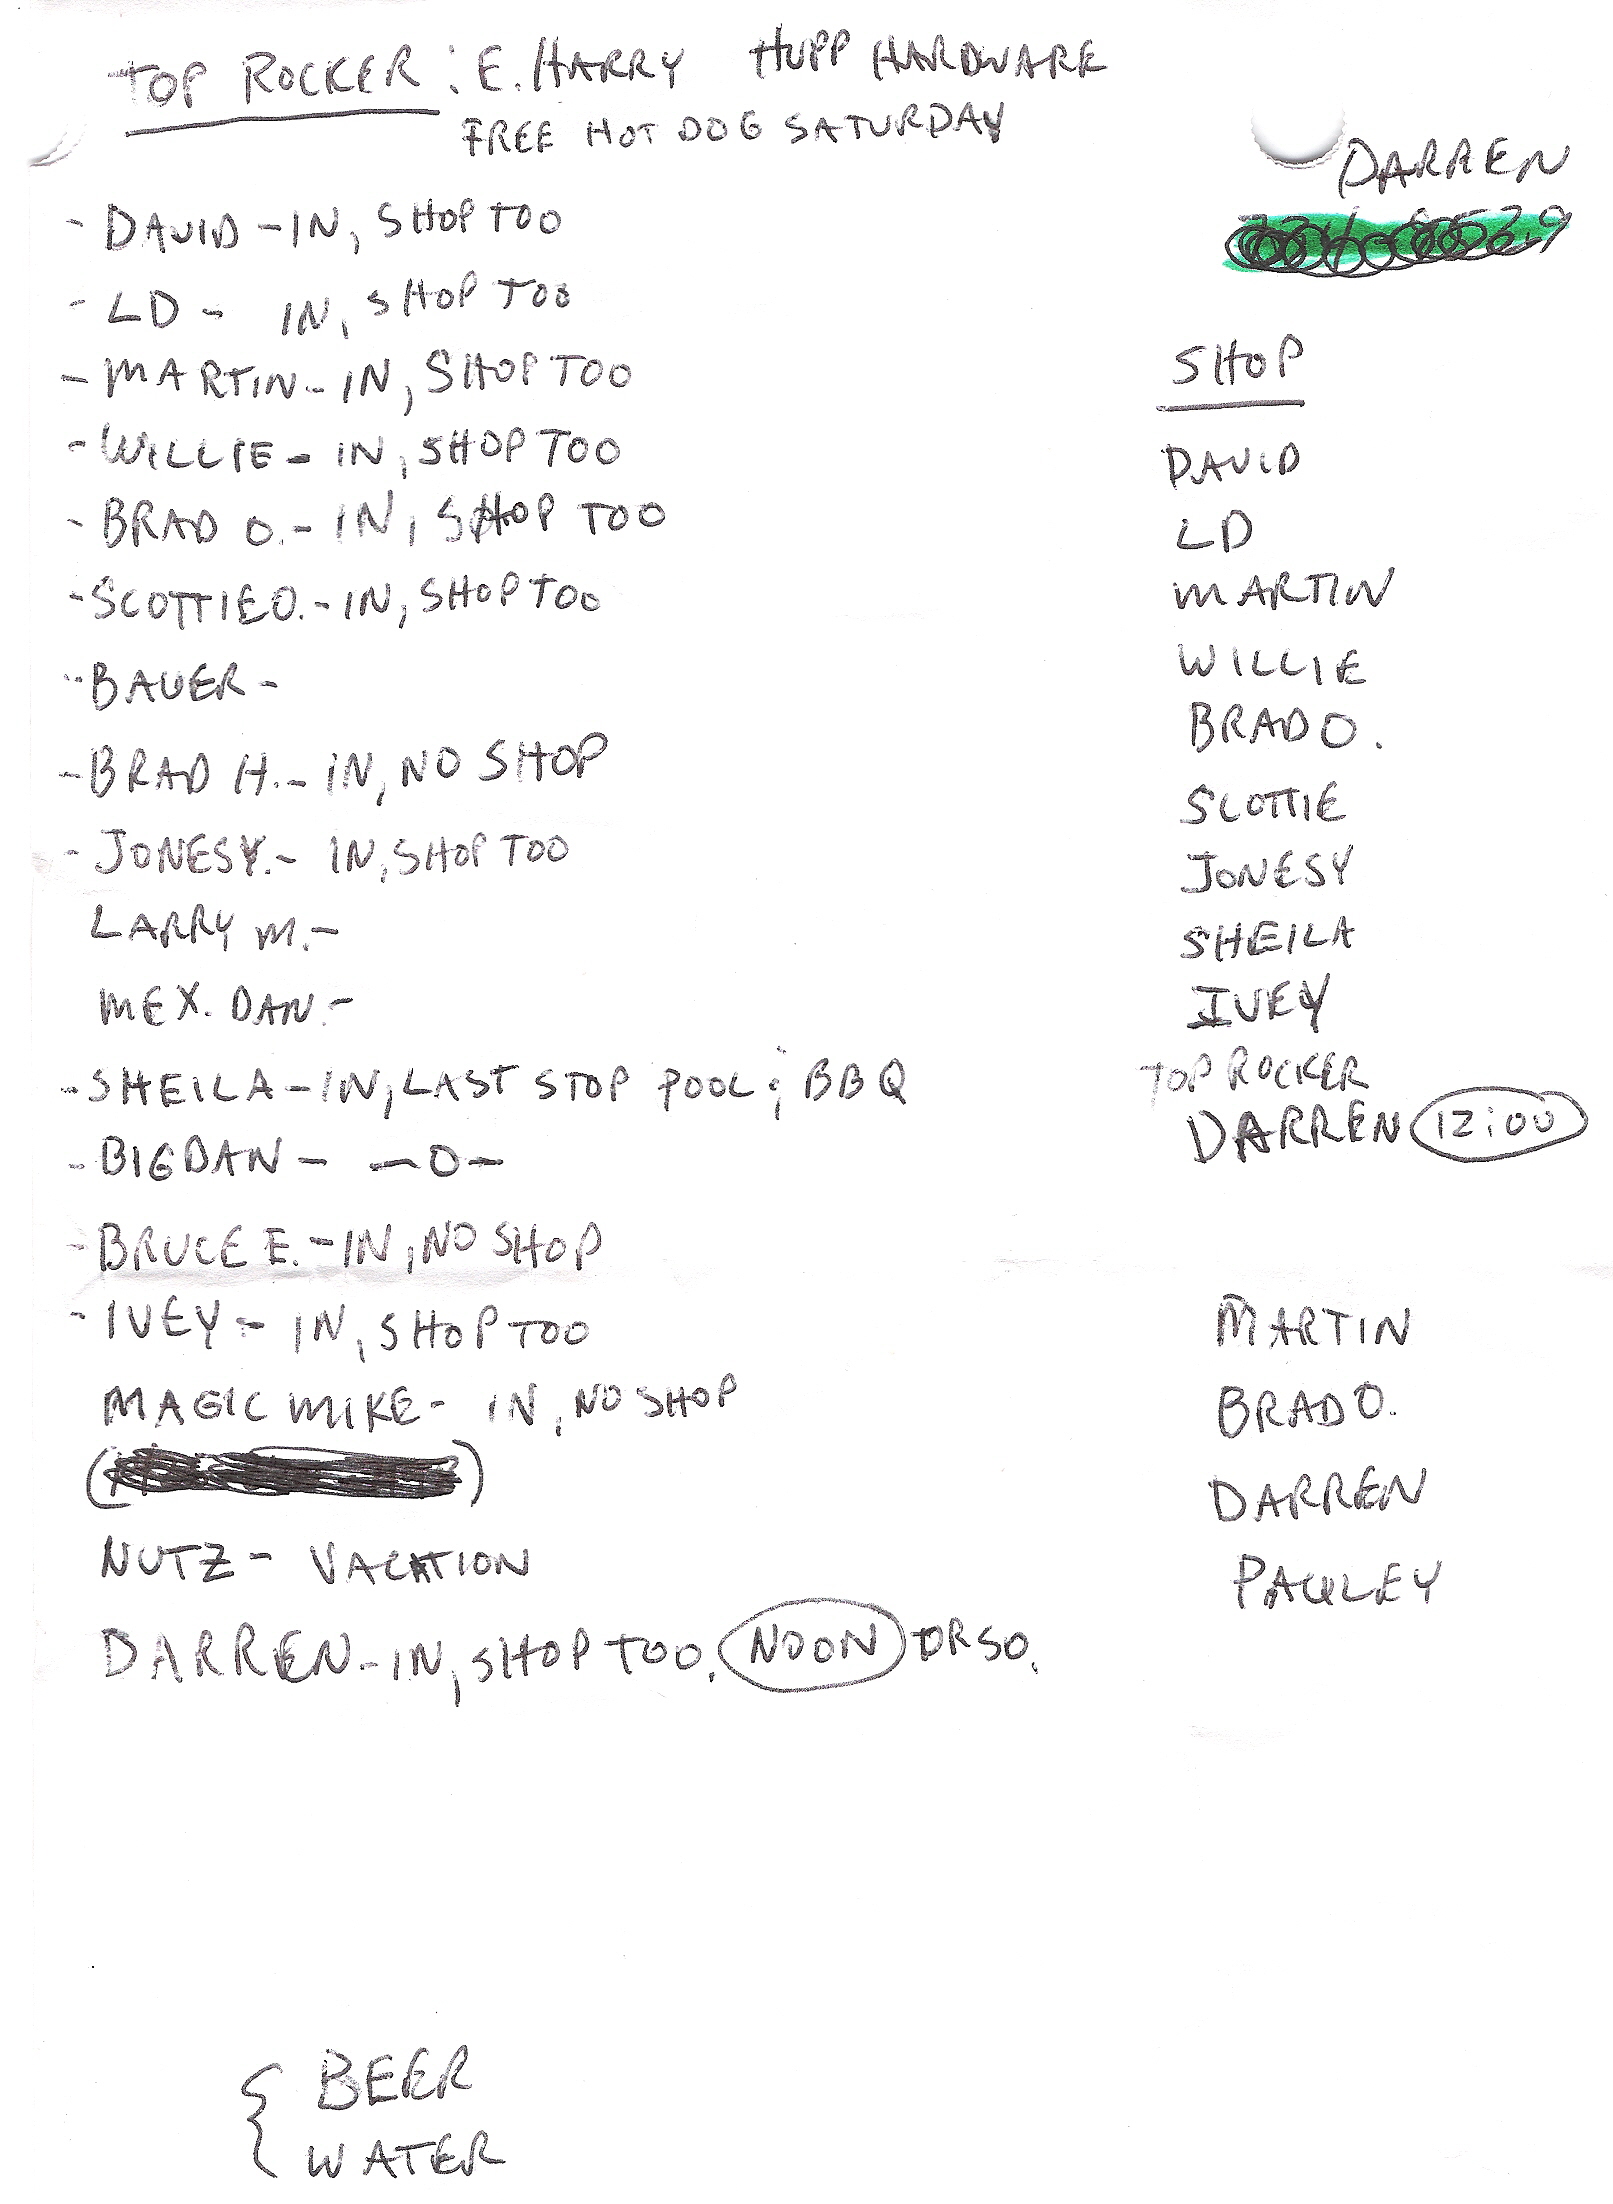 TOP ROCKER: E. HARRY HUPP HARDWARE
FREE HOT DOG SATURDAY
DARREN
- DAVID - IN, SHOP TOO
- LD - IN, SHOP TOO
- MARTIN - IN, SHOP TOO
- WILLIE - IN, SHOP TOO
- BRAD O. - IN, SHOP TOO
- SCOTTIE O. - IN, SHOP TOO
- BAUER -
- BRAD H. - IN, NO SHOP
- JONESY. - IN, SHOP TOO
LARRY M. -
MEX. DAN. -
- SHEILA - IN, LAST STOP POOL & BBQ
- BIG DAN - -0-
- BRUCE E. - IN, NO SHOP
- IVEY - IN, SHOP TOO
MAGIC MIKE - IN, NO SHOP
NUTZ - VACATION
DARREN - IN, SHOP TOO. NOON OR SO.
SHOP
DAVID
LD
MARTIN
WILLIE
BRAD O.
SCOTTIE
JONESY
SHEILA
IVEY
TOP ROCKER
DARREN 12:00
MARTIN
BRAD O.
DARREN
PAULEY
BEER
WATER